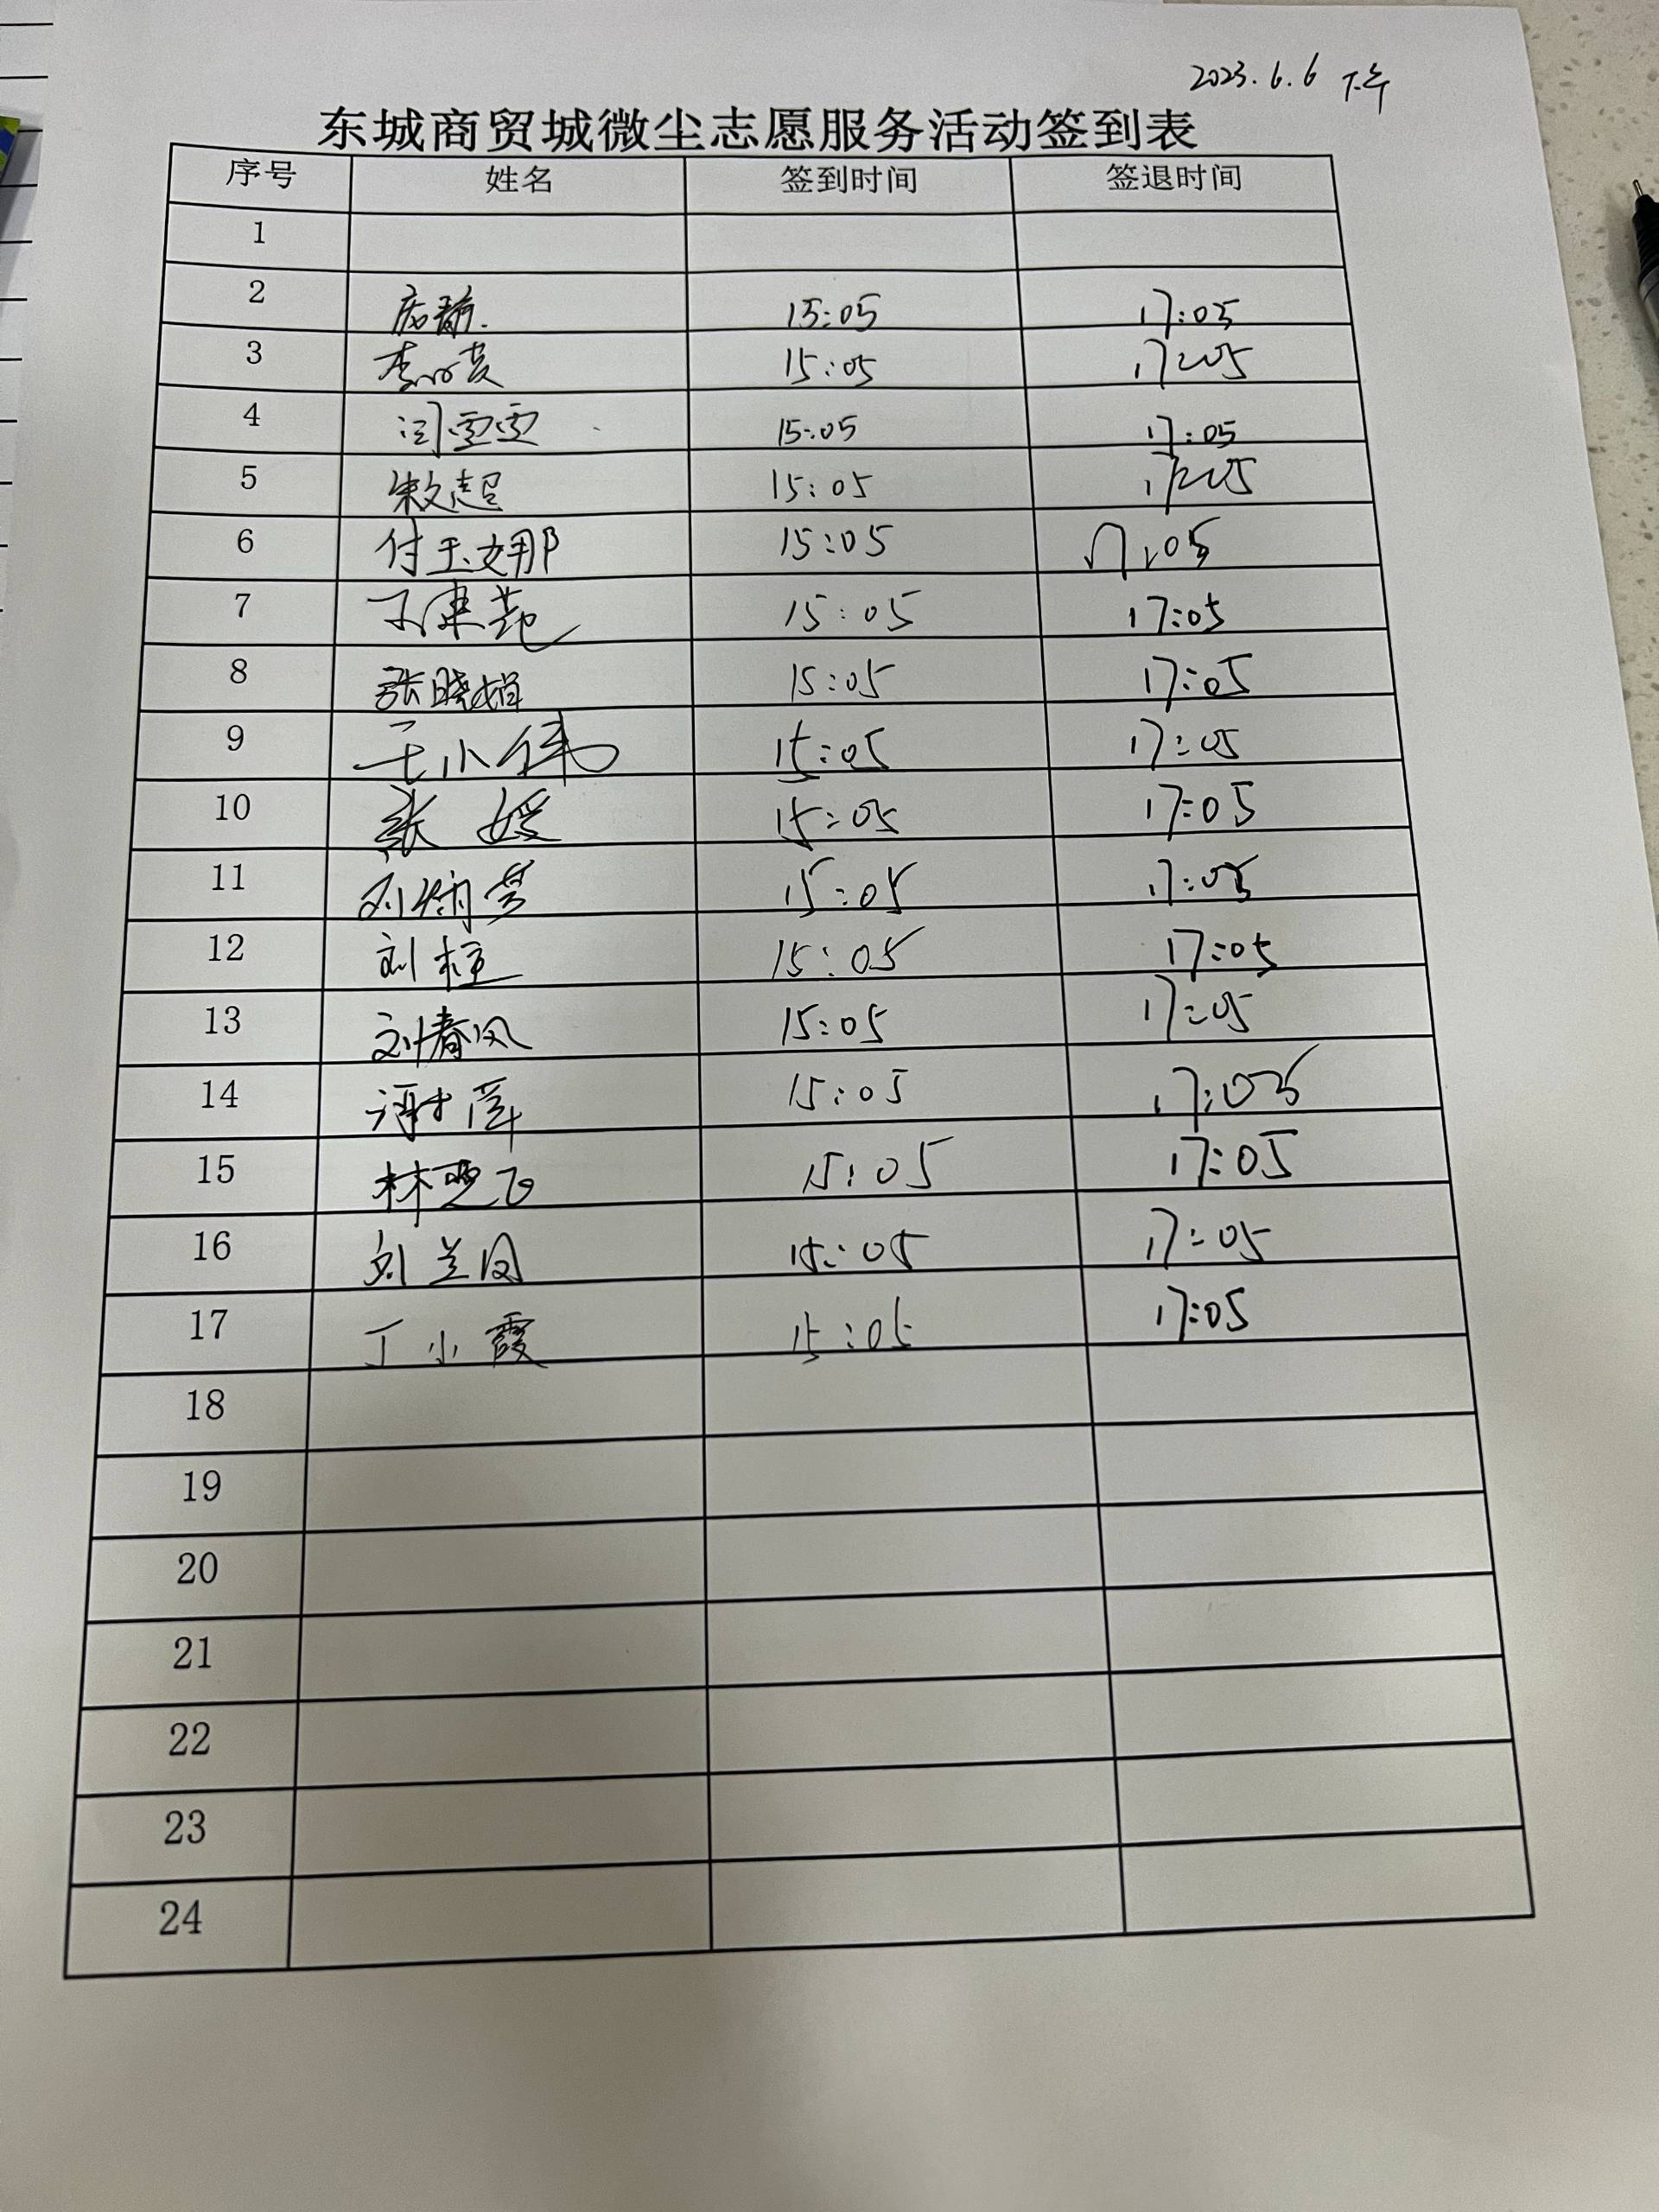 2023.6.6 下午
东城商贸城微尘志愿服务活动签到表
序号 姓名 签到时间 签退时间
1
2 庞静. 15:05 17:05
3 李 15:05 17:05
4 闫雯雯 15:05 17:05
5 15:05 17:05
6 付玉娜 15:05 17:05
7 15:05 17:05
8 张晓娟 15:05 17:05
9 王小伟 15:05 17:05
10 张媛 15:05 17:05
11 刘倩雯 15:05 17:05
12 刘桓 15:05 17:05
13 刘春凤 15:05 17:05
14 谢萍 15:05 17:05
15 林楚飞 15:05 17:05
16 刘兰凤 15:05 17:05
17 丁小霞 15:05 17:05
18
19
20
21
22
23
24